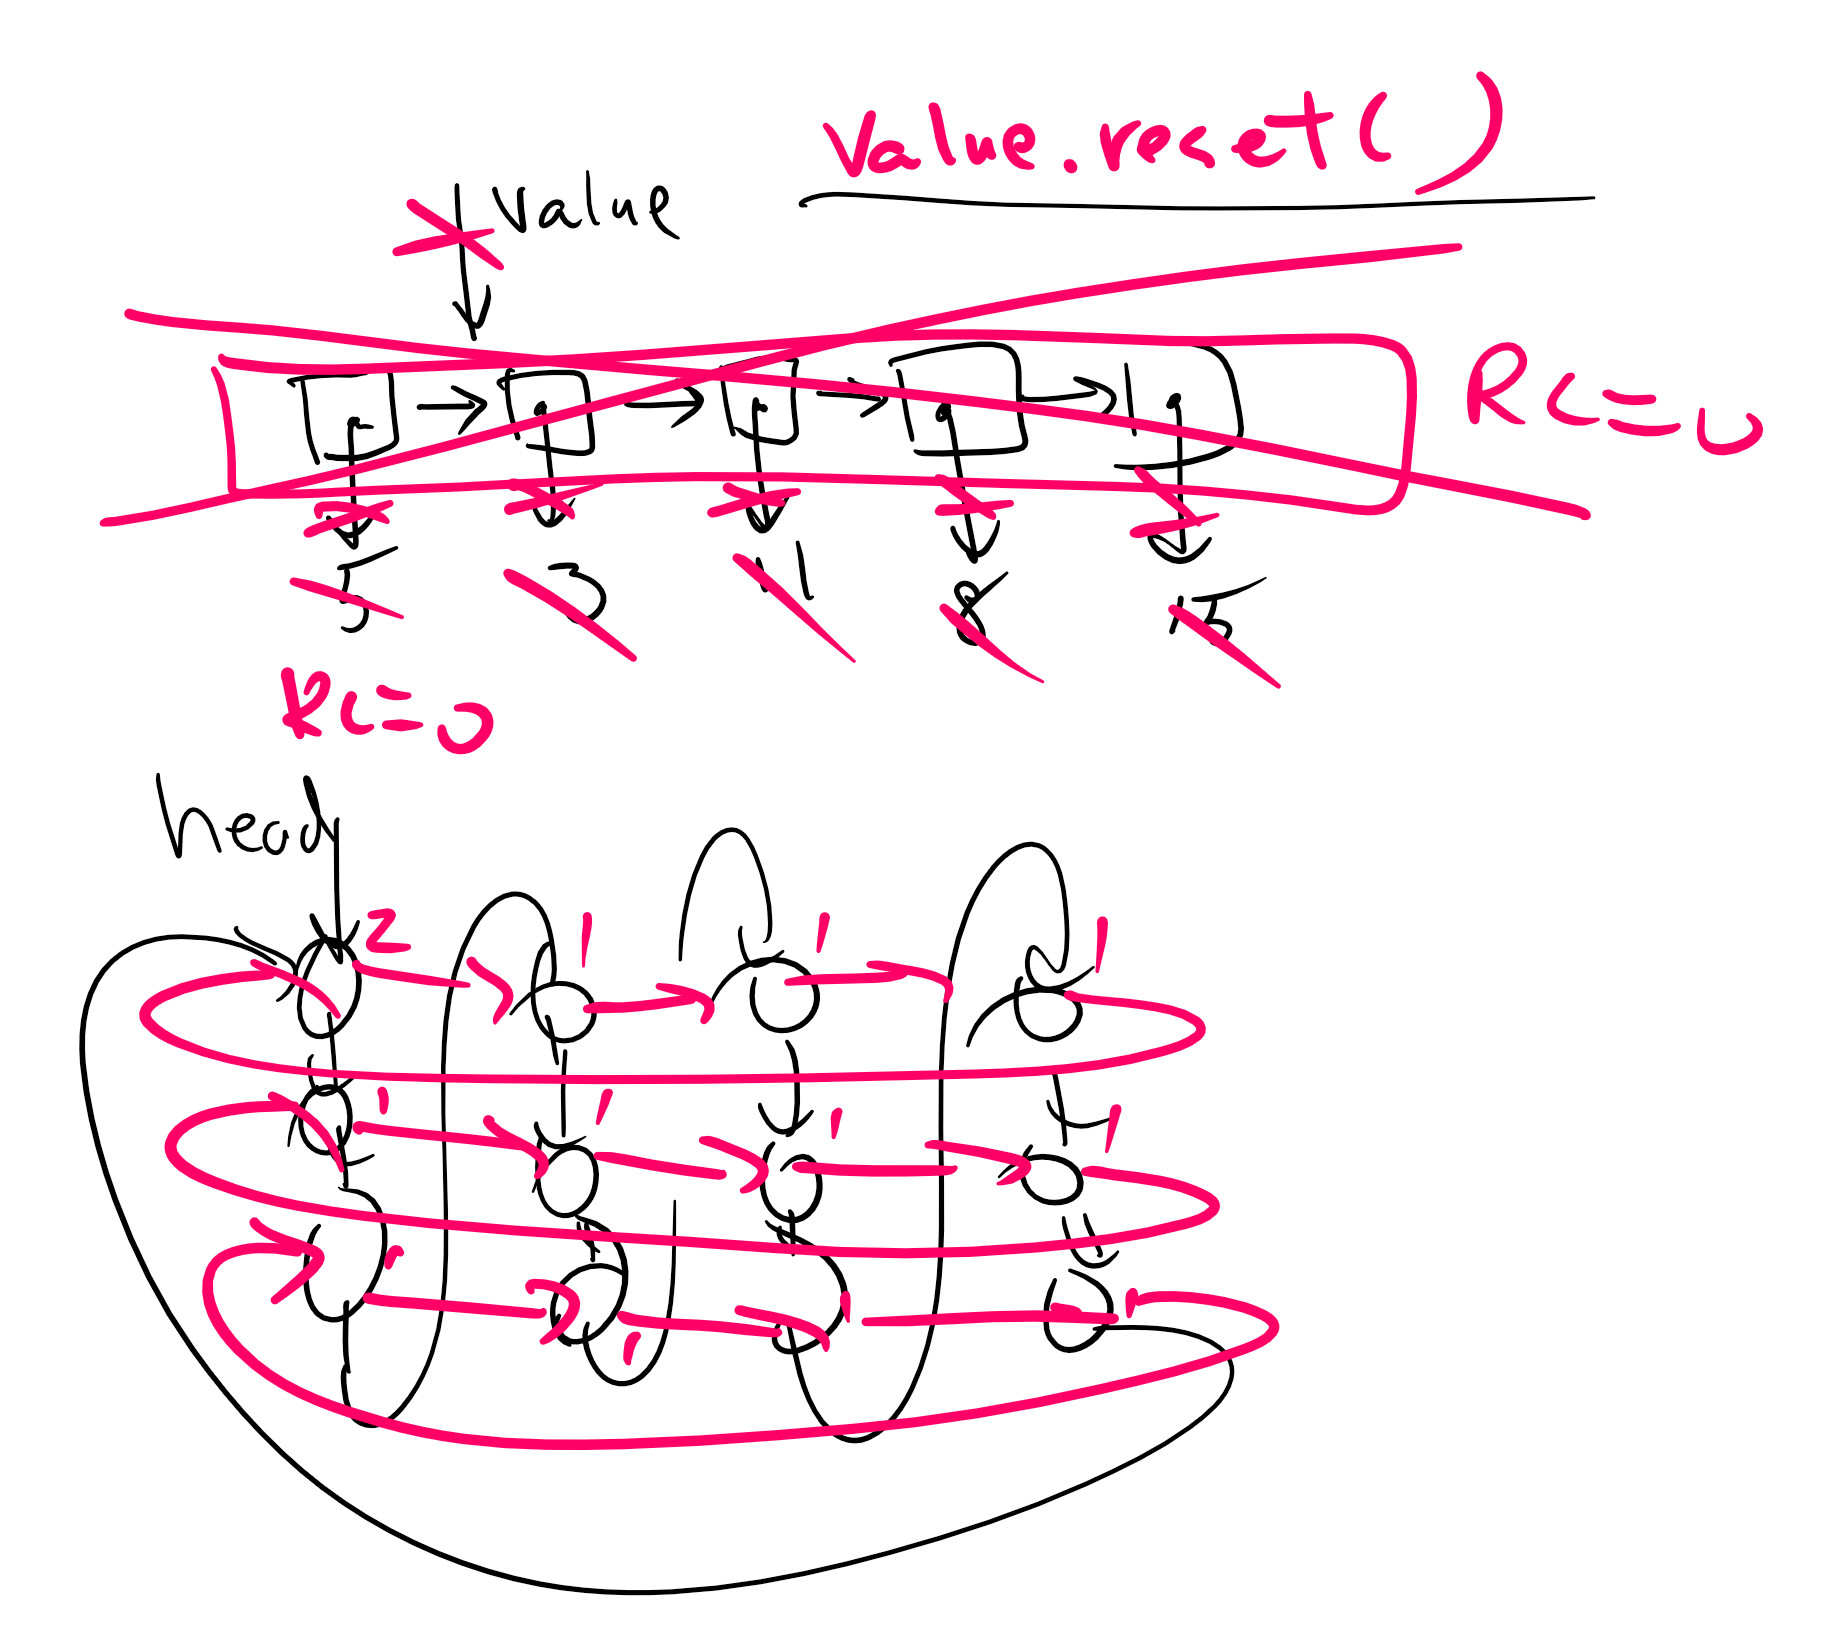 Value.reset()
value
RC=0
5 3 11 8 15
RC=0
head
2 1 1 1
1 1 1 1
1 1 1 1